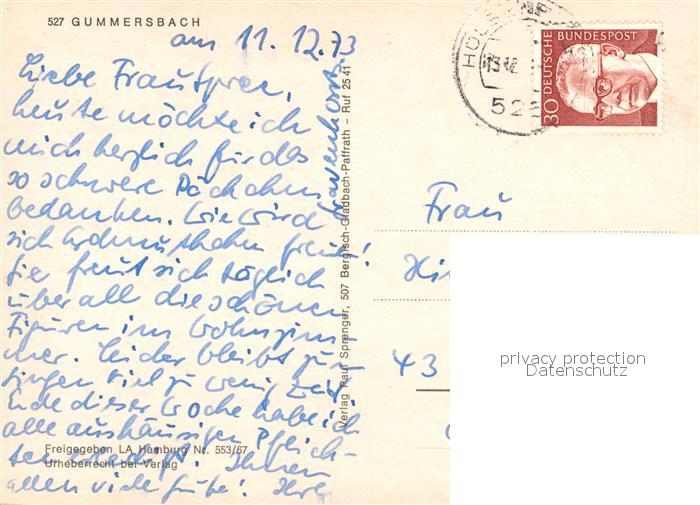 527 GUMMERSBACH
am 11.12.73
Liebe Frau Spree,
heute möchte ich
mich herzlich für das
so schwere Päckchen
bedanken. Wie wird
sich freun!
Sie freut sich täglich
über all die schönen
Figuren im Wohnzim-
mer. Leider bleibt zum
Singen viel zu wenig Zeit.
Ende dieser Woche habe ich
alle aushäusigen Pflich-
ten erledigt. Ihnen
allen viele Grüße! Ihre
Freigegeben LA Hamburg Nr. 553/67
Urheberrecht bei Verlag
Verlag Paul Sprenger, 507 Bergisch-Gladbach-Paffrath - Ruf 25 41
DEUTSCHE BUNDESPOST
30
13.12.
52
Frau
43
privacy protection
Datenschutz